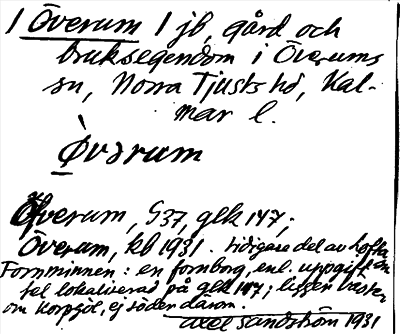 1 Överum 1 jb, gård och
bruksegendom i Överums
sn, Norra Tjusts hd, Kal-
mar l.
Öv̀ərum
Öfverum, G37, glk 147;
Överum, kb 1931. tidigare del av
Fornminnen: en fornborg, enl. uppgift
fel lokaliserad på glk 147; ligger väster
om Korpsjö, ej söder därom.
Axel Sandström 1931